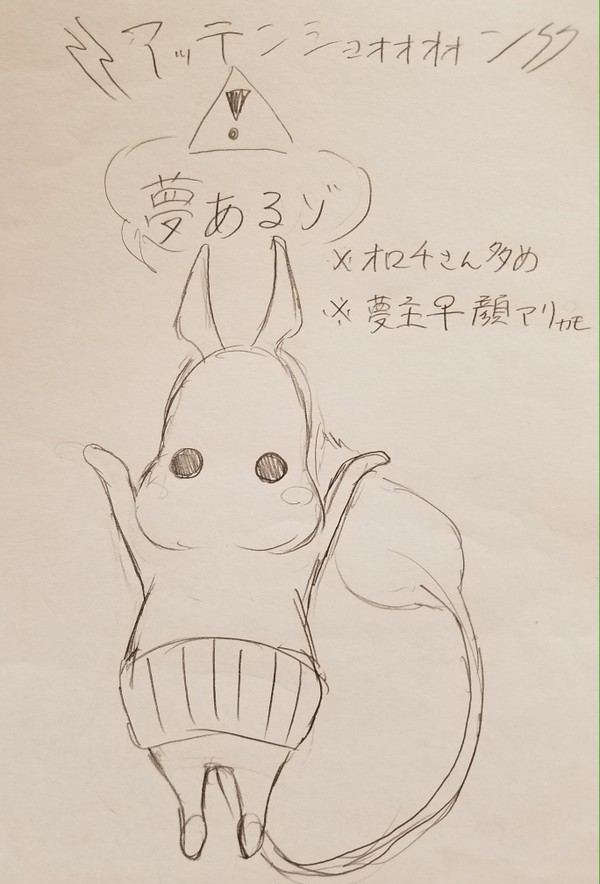 アッテンショォォォォン
夢あるゾ
※オロチさん多め
※夢主早顔アリカモ